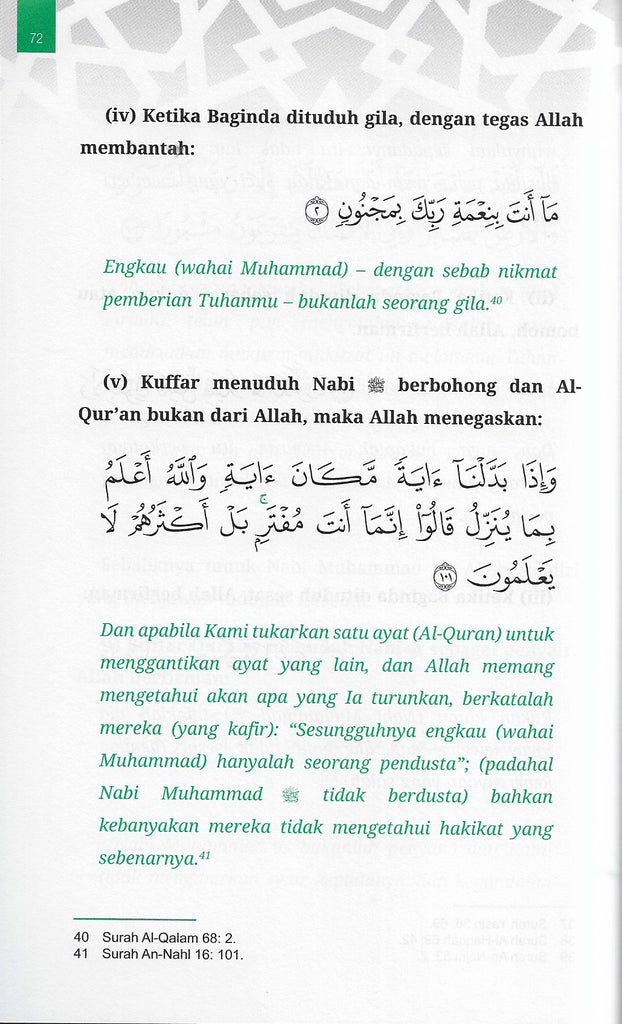 72
(iv) Ketika Baginda dituduh gila, dengan tegas Allah
membantah:
مَآ أَنتَ بِنِعْمَةِ رَبِّكَ بِمَجْنُونٍ ٢
Engkau (wahai Muhammad) – dengan sebab nikmat
pemberian Tuhanmu – bukanlah seorang gila.40
(v) Kuffar menuduh Nabi ﷺ berbohong dan Al-
Qur’an bukan dari Allah, maka Allah menegaskan:
وَإِذَا بَدَّلْنَآ ءَايَةً مَّكَانَ ءَايَةٍ وَٱللَّهُ أَعْلَمُ
بِمَا يُنَزِّلُ قَالُوٓا۟ إِنَّمَآ أَنتَ مُفْتَرٍۭ ۚ بَلْ أَكْثَرُهُمْ لَا
يَعْلَمُونَ ١٠١
Dan apabila Kami tukarkan satu ayat (Al-Quran) untuk
menggantikan ayat yang lain, dan Allah memang
mengetahui akan apa yang Ia turunkan, berkatalah
mereka (yang kafir): “Sesungguhnya engkau (wahai
Muhammad) hanyalah seorang pendusta”; (padahal
Nabi Muhammad ﷺ tidak berdusta) bahkan
kebanyakan mereka tidak mengetahui hakikat yang
sebenarnya.41
40 Surah Al-Qalam 68: 2.
41 Surah An-Nahl 16: 101.